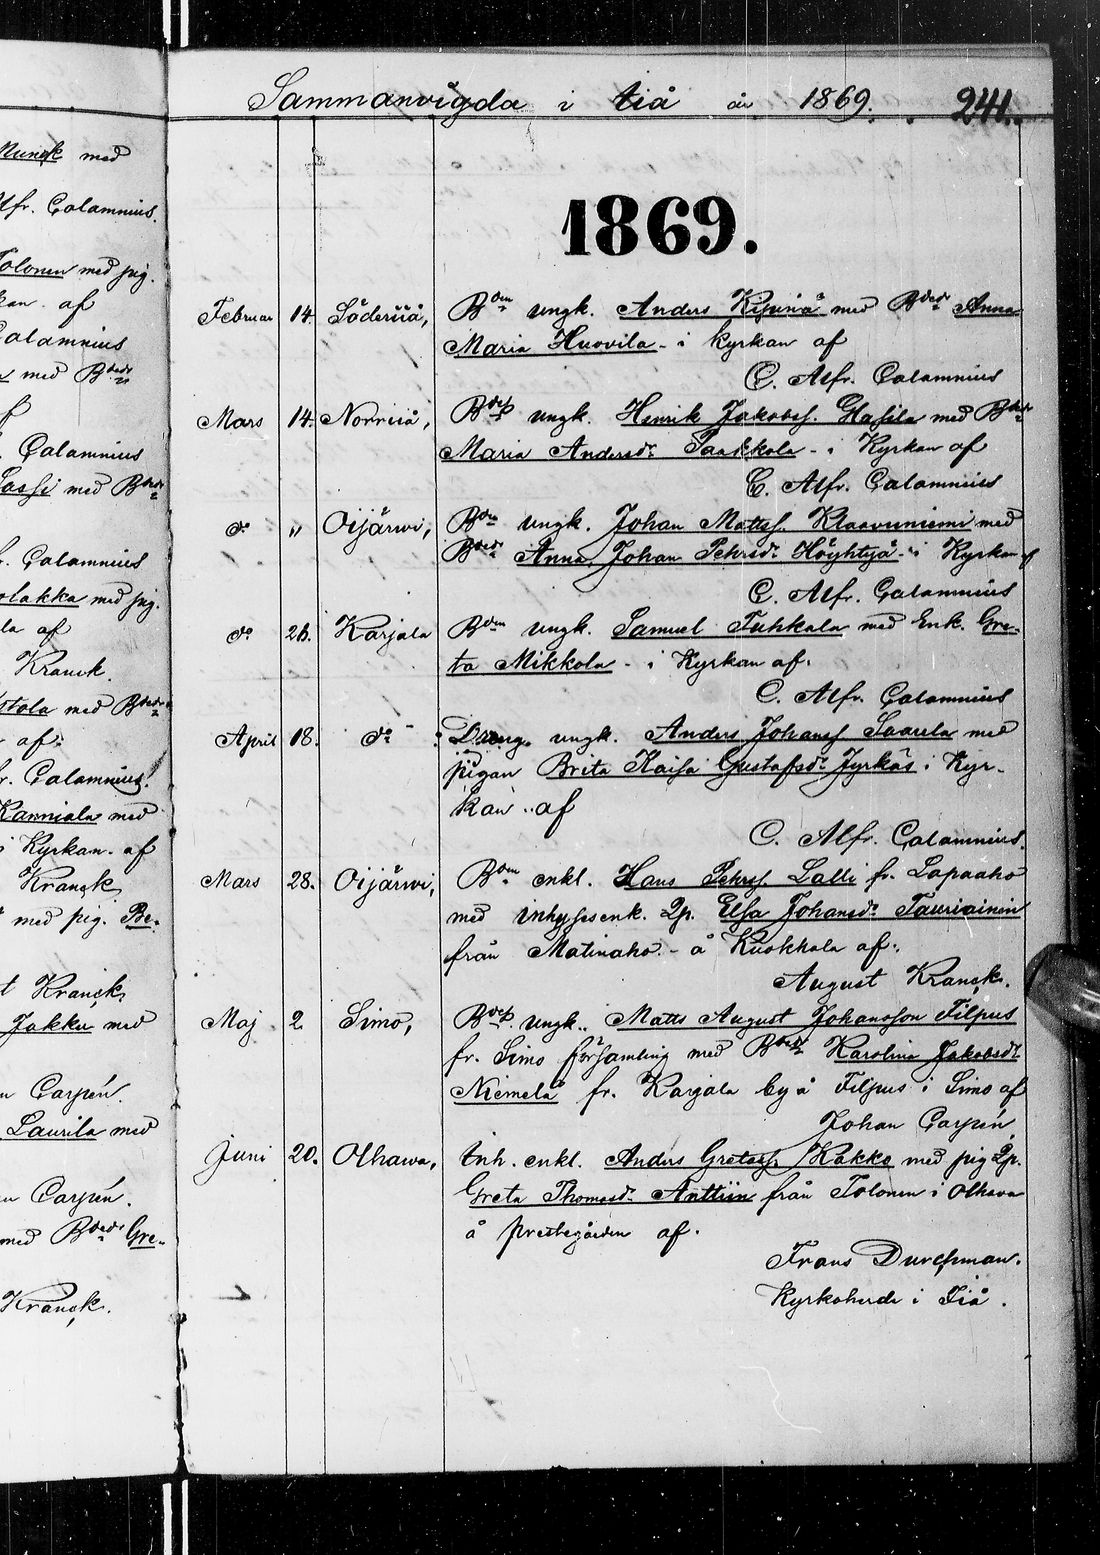 Munck med
Alfr. Calamnius.
Tolonen med pig.
kan af
Calamnius
med Bdedr
f
Calamnius
Sassi med Bdedr
r. Calamnius
olakka med pig.
la af
Kranck.
stola med Bdedr
af.
r. Calamnius.
Kanniala med
i Kyrkan af
Kranck.
med pig. Be-
t Kranck
Jakku med
n Carpén.
Laurila med
n Carpén.
med Bdedr Gre-
Kranck.
Sammanvigda i Iiå år 1869. 241.
1869.
Februar 14. Söderiiå, Bdem ungk. Anders Kipinä med Bdedr Anna
Maria Huovila - i kyrkan af
C. Alfr. Calamnius
Mars 14. Norriiå, Bdes ungk. Henrik Jakobss. Hassila med Bdedr
Maria Andersdr Paakkola - i Kyrkan af
C. Alfr. Calamnius
do " Oijärwi, Bdem ungk. Johan Mattss. Klaavuniemi med
Bdedr Anna Johan Pehrsdr Höyhtyä - i Kyrkan af
C. Alfr. Calamnius
do 26. Karjala Bdem ungk. Samuel Tuhkala med Enk. Gre-
ta Mikkola - i Kyrkan af.
C. Alfr. Calamnius
April 18. do Dreng. ungk. Anders Johanss Saarela med
pigan Brita Kaisa Gustafsdr Jyrkäs i Kyr-
kan af
C. Alfr. Calamnius.
Mars 28. Oijärwi, Bdem enkl. Hans Pehrss. Lalli fr. Lapaaho
med inhysesenk. Qp. Elsa Johansdr Tauriainen
från Matinaho. - å Kuokkola af.
August Kranck.
Maj 2 Simo, Bdes. ungk. Matts August Johansson Filpus
fr. Simo församling med Bdedr Karolina Jakobsdr
Niemelä fr. Karjala by å Filpus i Simo af
Johan Carpén
Juni 20. Olhawa, Inh. enkl. Anders Gretass. Kakko med pig Qp.
Greta Thomasdr Anttiin från Tolonen i Olhava
å prestegården af.
Frans Durchman.
Kyrkoherde i Iiå.